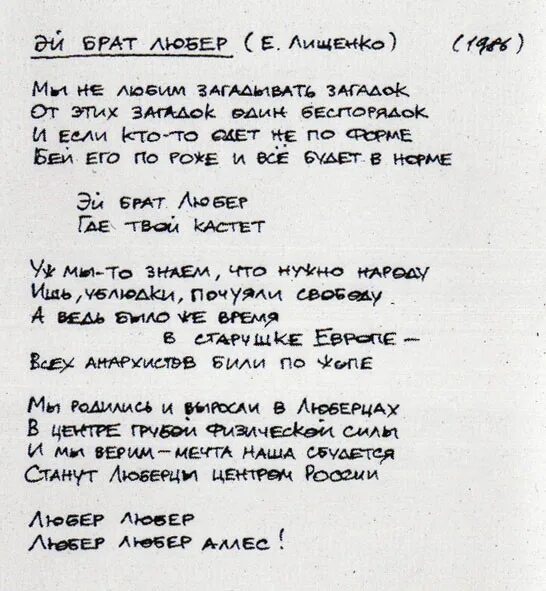 ЭЙ БРАТ ЛЮБЕР (Е. Лищенко) (1986)
Мы не любим загадывать загадок
От этих загадок один беспорядок
И если кто-то одет не по форме
Бей его по роже и всё будет в норме
Эй брат Любер
Где твой кастет
Уж мы-то знаем, что нужно народу
Ишь, ублюдки, почуяли свободу
А ведь было же время
в старушке Европе –
Всех анархистов били по жопе
Мы родились и выросли в Люберцах
В центре грубой физической силы
И мы верим – мечта наша сбудется
Станут Люберцы центром России
Любер Любер
Любер Любер аллес!